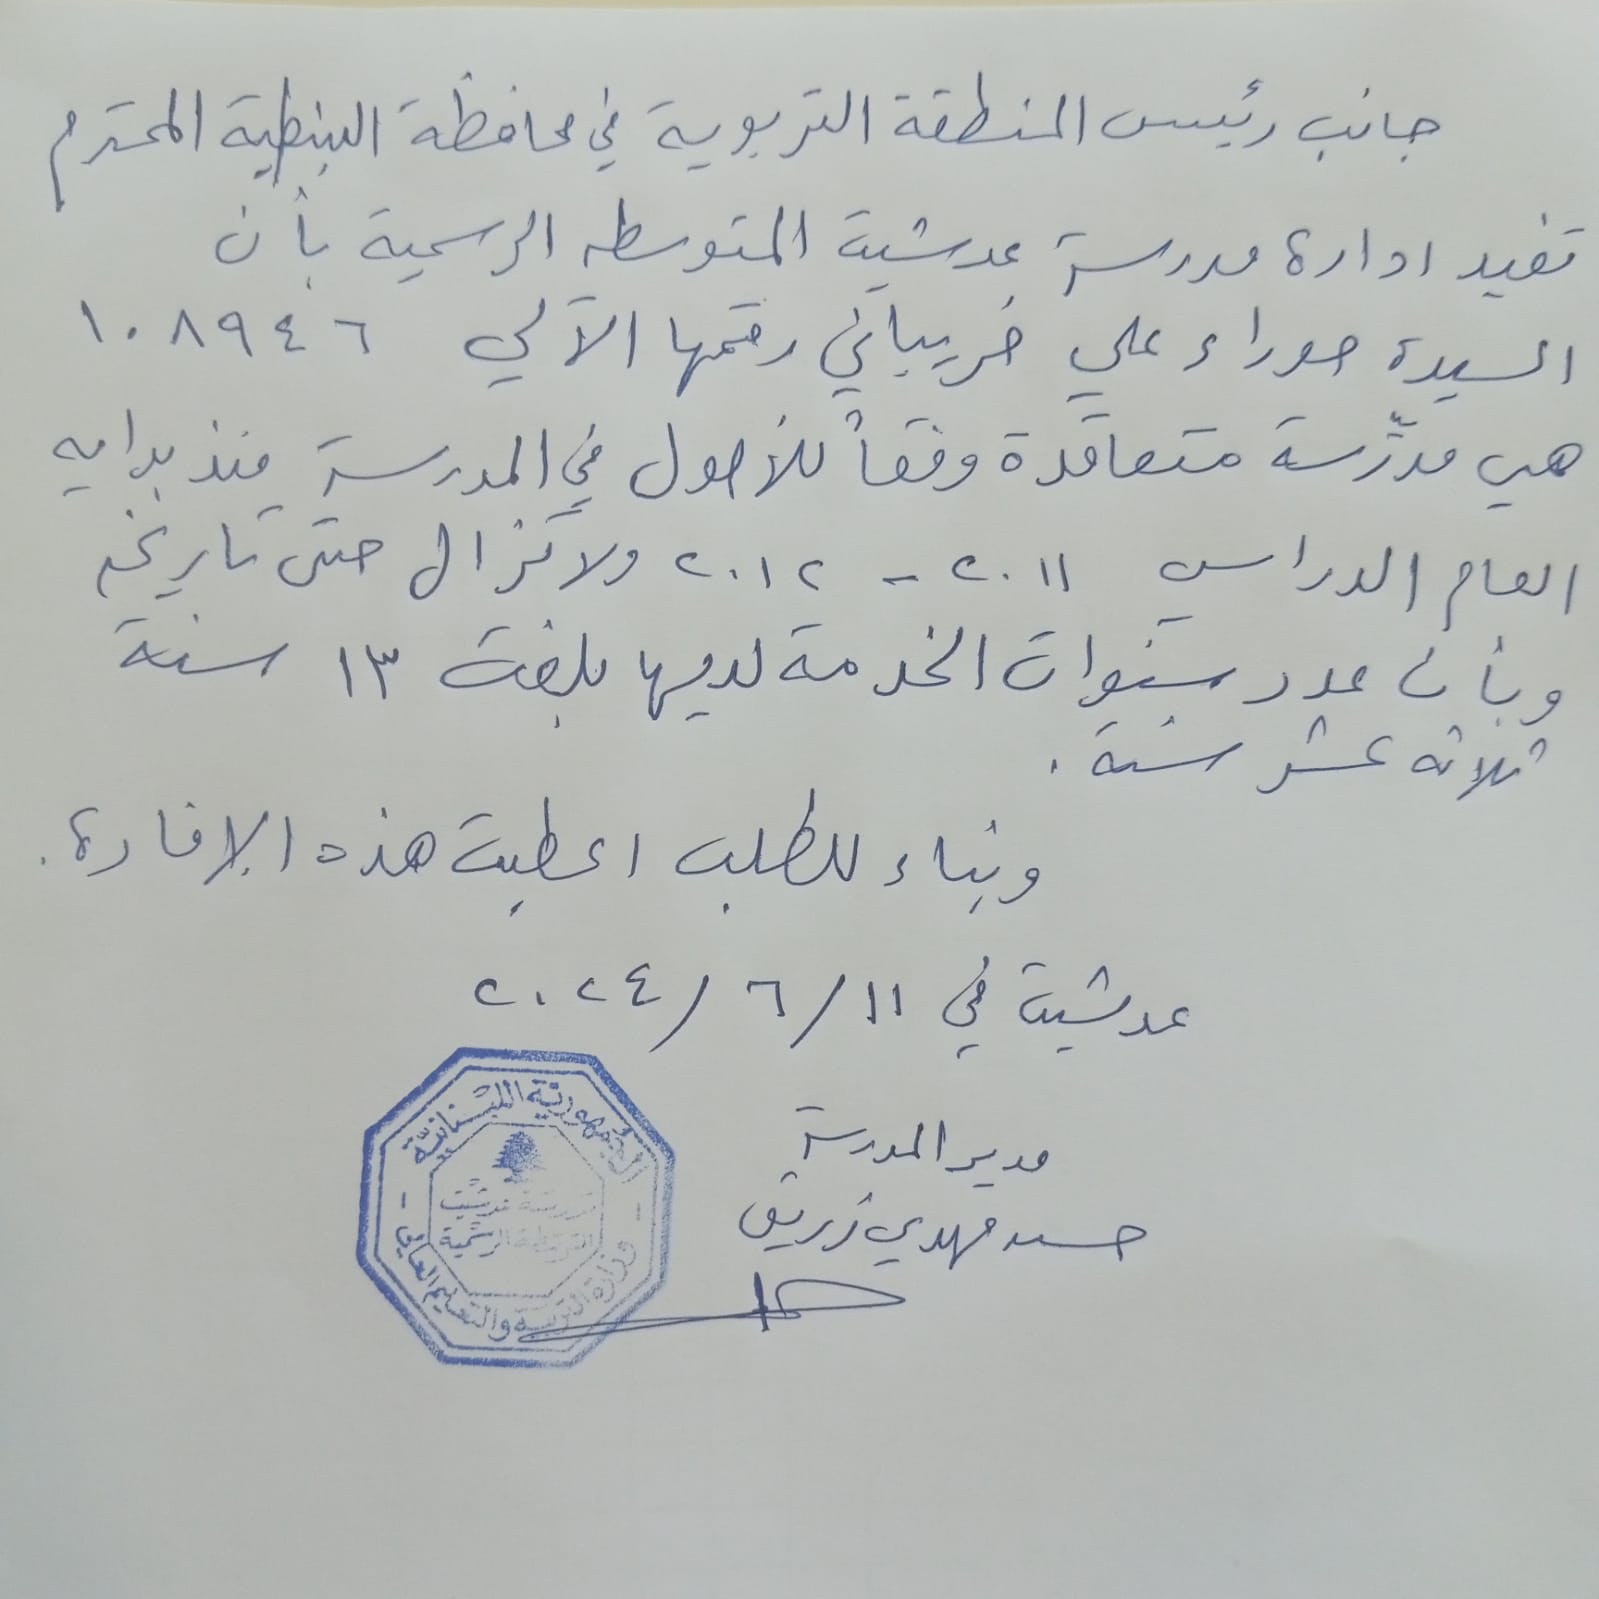 جانب رئيس المنطقة التربوية في محافظة النبطية المحترم
تفيد ادارة مدرسة عدشيت المتوسطه الرسمية بأن
السيدة حوراء علي خريباني رقمها الآلي ١٠٨٩٤٦
هي مدرّسة متعاقدة وفقاً للأصول في المدرسة منذ بدايه
العام الدراسي ٢٠١١ - ٢٠١٢ ولا تزال حتى تاريخه
وبأن عدد سنوات الخدمة لديها بلغت ١٣ سنة
ثلاثه عشر سنة .
وبناء للطلب اعطيت هذه الإفادة .
عدشيت في ١١ / ٦ / ٢٠٢٤
مدير المدرسة
حسن مهدي زريق
الجمهورية اللبنانية
مدرسة عدشيت
الرسمية
وزارة التربية والتعليم العالي